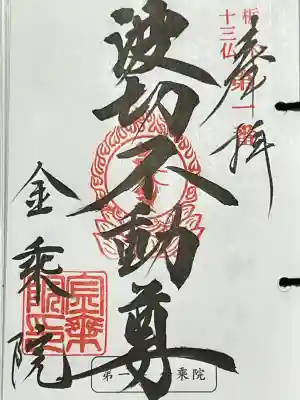 奉拝
栃木
十三仏第一番
波切不動尊
金乗院
第一番 金乗院